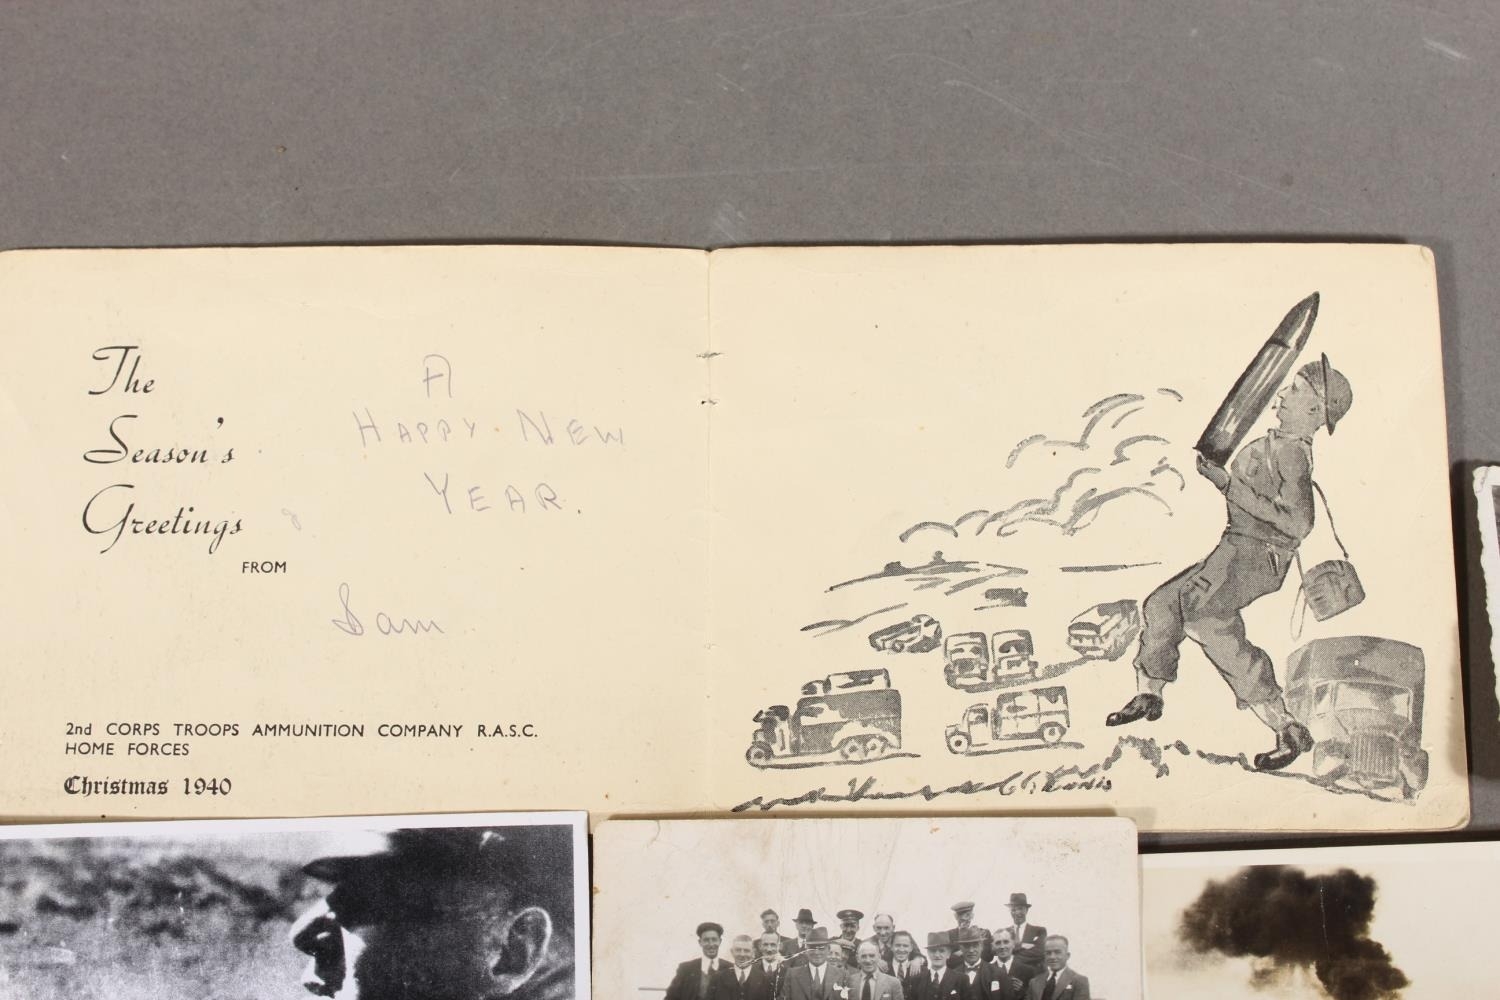 The
Season's
Greetings
FROM
A
HAPPY NEW
YEAR.
Sam
2nd CORPS TROOPS AMMUNITION COMPANY R.A.S.C.
HOME FORCES
Christmas 1940